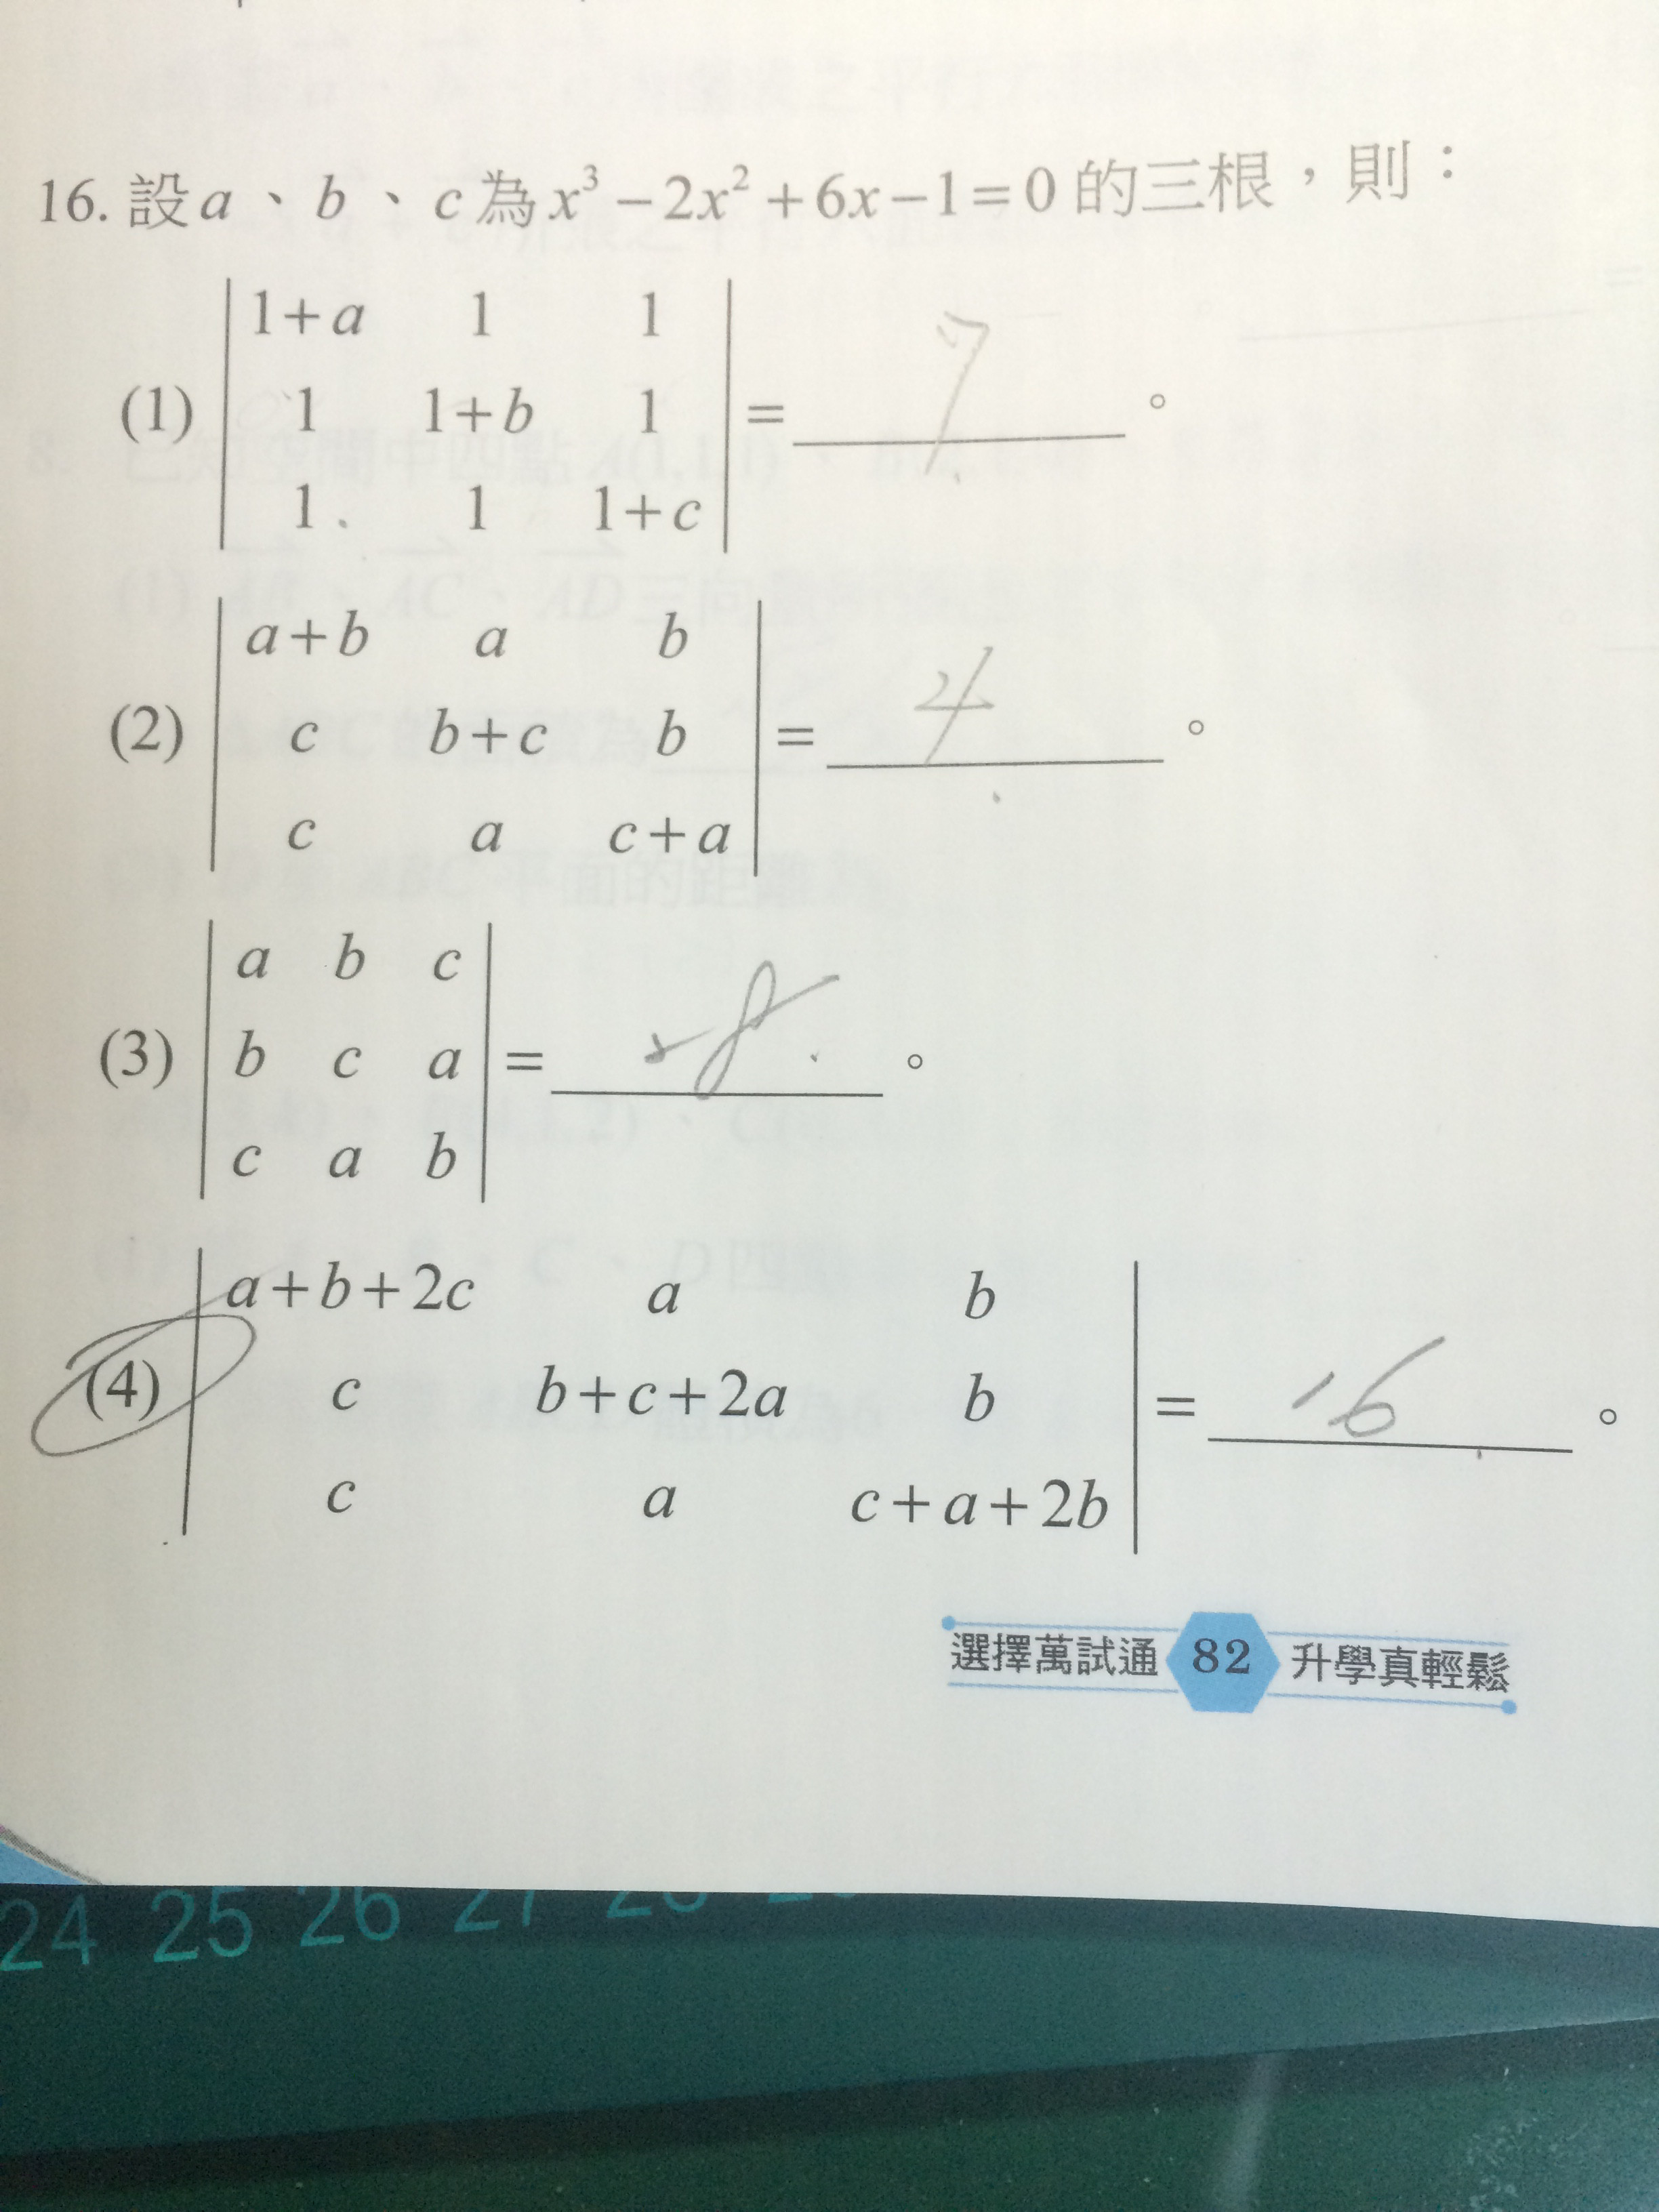 16. 設 a、b、c 為 x³－2x²＋6x－1＝0 的三根，則：
(1) | 1+a 1 1 |
| 1 1+b 1 | = 7 。
| 1 1 1+c |
(2) | a+b a b |
| c b+c b | = 4 。
| c a c+a |
(3) | a b c |
| b c a | = 。
| c a b |
(4) | a+b+2c a b |
| c b+c+2a b | = 16 。
| c a c+a+2b |
選擇萬試通 82 升學真輕鬆
24 25 26 27 28